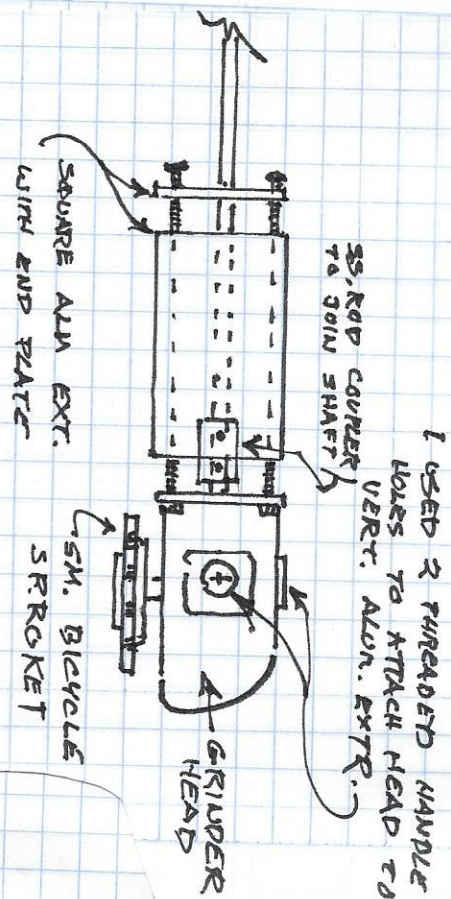 I USED 2 THREADETD HANDLE
HOLES TO ATTACH HEAD TO
VERT. ALUM. EXTR.
SS. ROD COUPLER
TO JOIN SHAFT
GRINDER
HEAD
SM. BICYCLE
SRROKET
SQUARE ALUM EXT.
WITH END PLATE